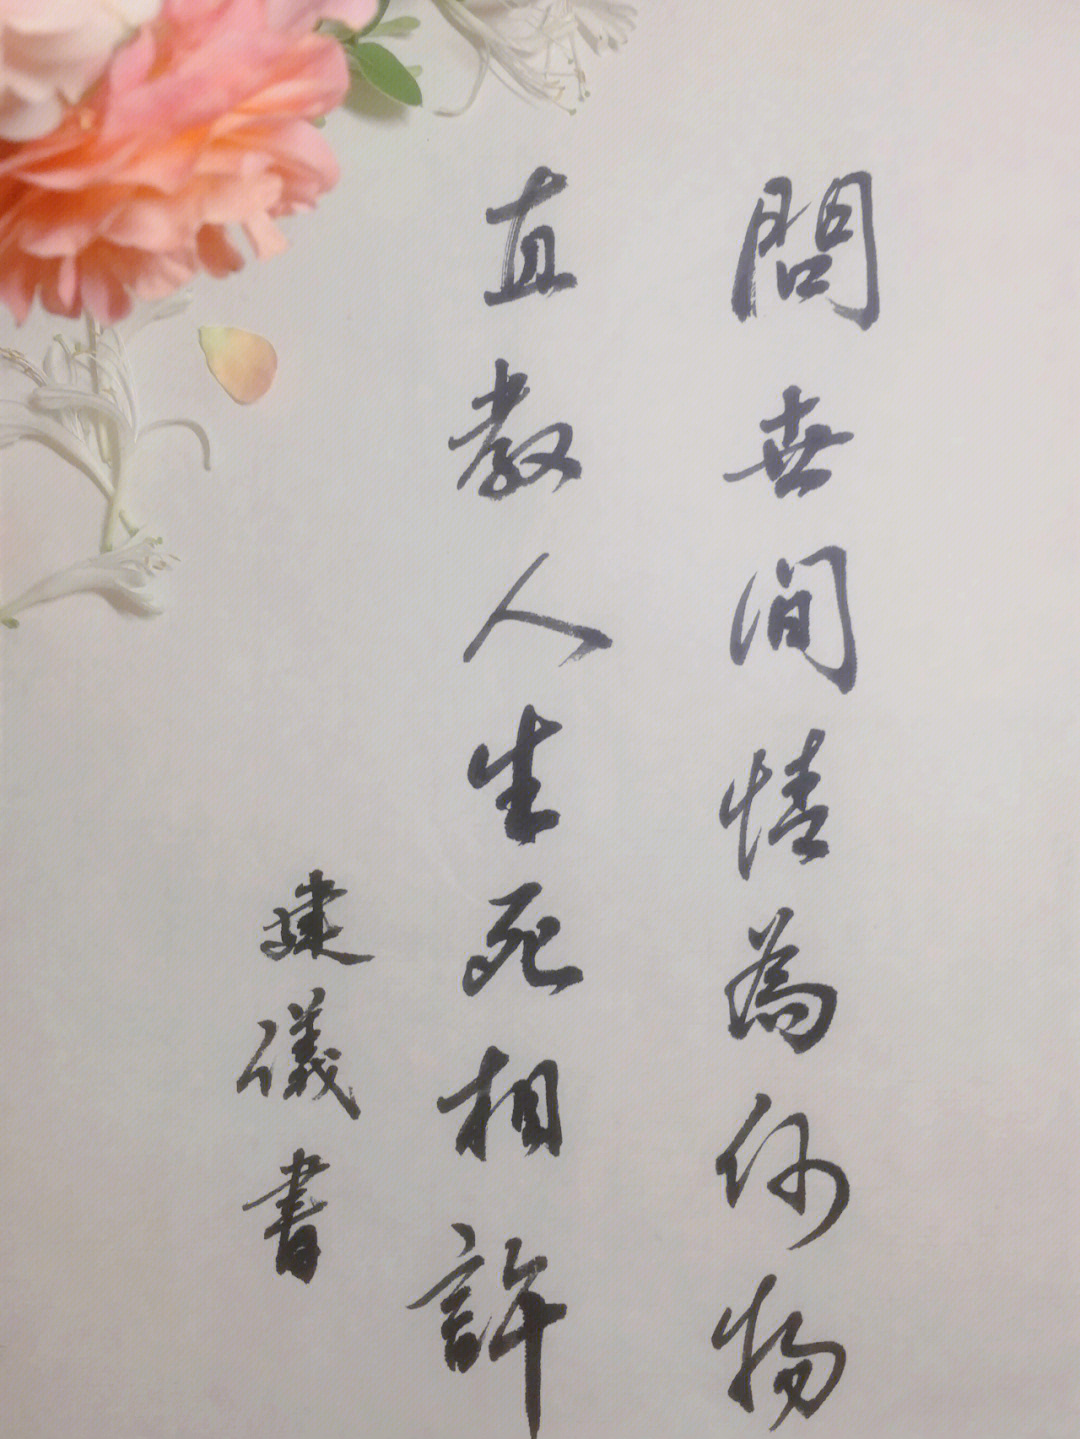 問世間情為何物
直教人生死相許
建儀書